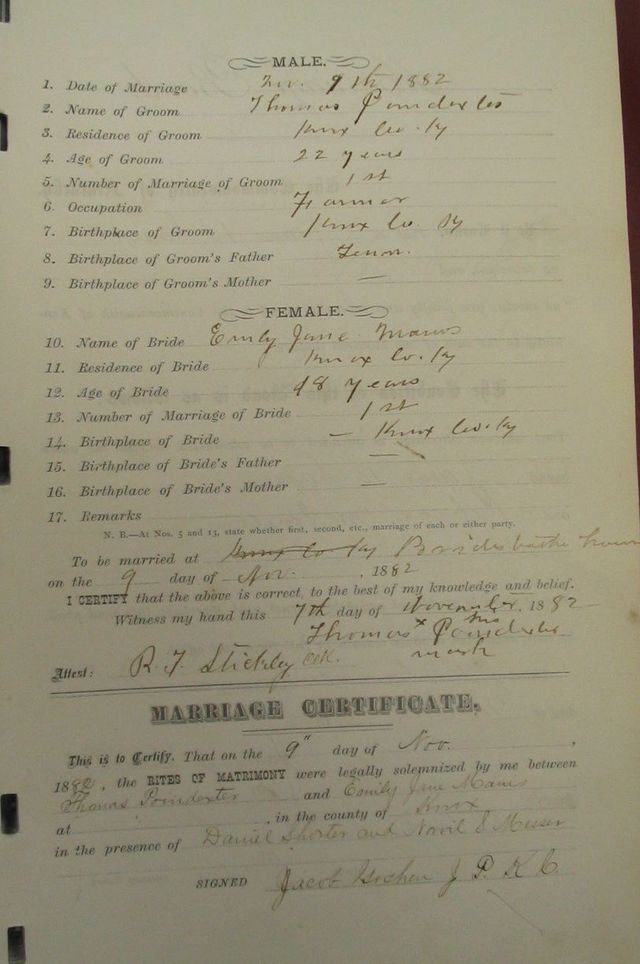 MALE.
1. Date of Marriage Nov. 9th 1882
2. Name of Groom Thomas Poindexter
3. Residence of Groom Knox Co. Ky
4. Age of Groom 22 years
5. Number of Marriage of Groom 1st
6. Occupation Farmer
7. Birthplace of Groom Knox Co. Ky
8. Birthplace of Groom's Father Tenn.
9. Birthplace of Groom's Mother —
FEMALE.
10. Name of Bride Emily Jane
11. Residence of Bride Knox Co. Ky
12. Age of Bride 18 years
13. Number of Marriage of Bride 1st
14. Birthplace of Bride — Knox Co. Ky
15. Birthplace of Bride's Father —
16. Birthplace of Bride's Mother —
17. Remarks
N. B.—At Nos. 5 and 13, state whether first, second, etc., marriage of each or either party.
To be married at Knox Co Ky
on the 9 day of Nov. , 1882
I CERTIFY that the above is correct, to the best of my knowledge and belief.
Witness my hand this 7th day of November, 1882
Thomas x Poindexter his
mark
Attest: R. F. Stickley
MARRIAGE CERTIFICATE.
This is to Certify, That on the 9" day of Nov. ,
1882, the RITES OF MATRIMONY were legally solemnized by me between
Thomas Poindexter and Emily Jane
at , in the county of Knox
in the presence of Daniel and Messer
SIGNED Jacob J P K C